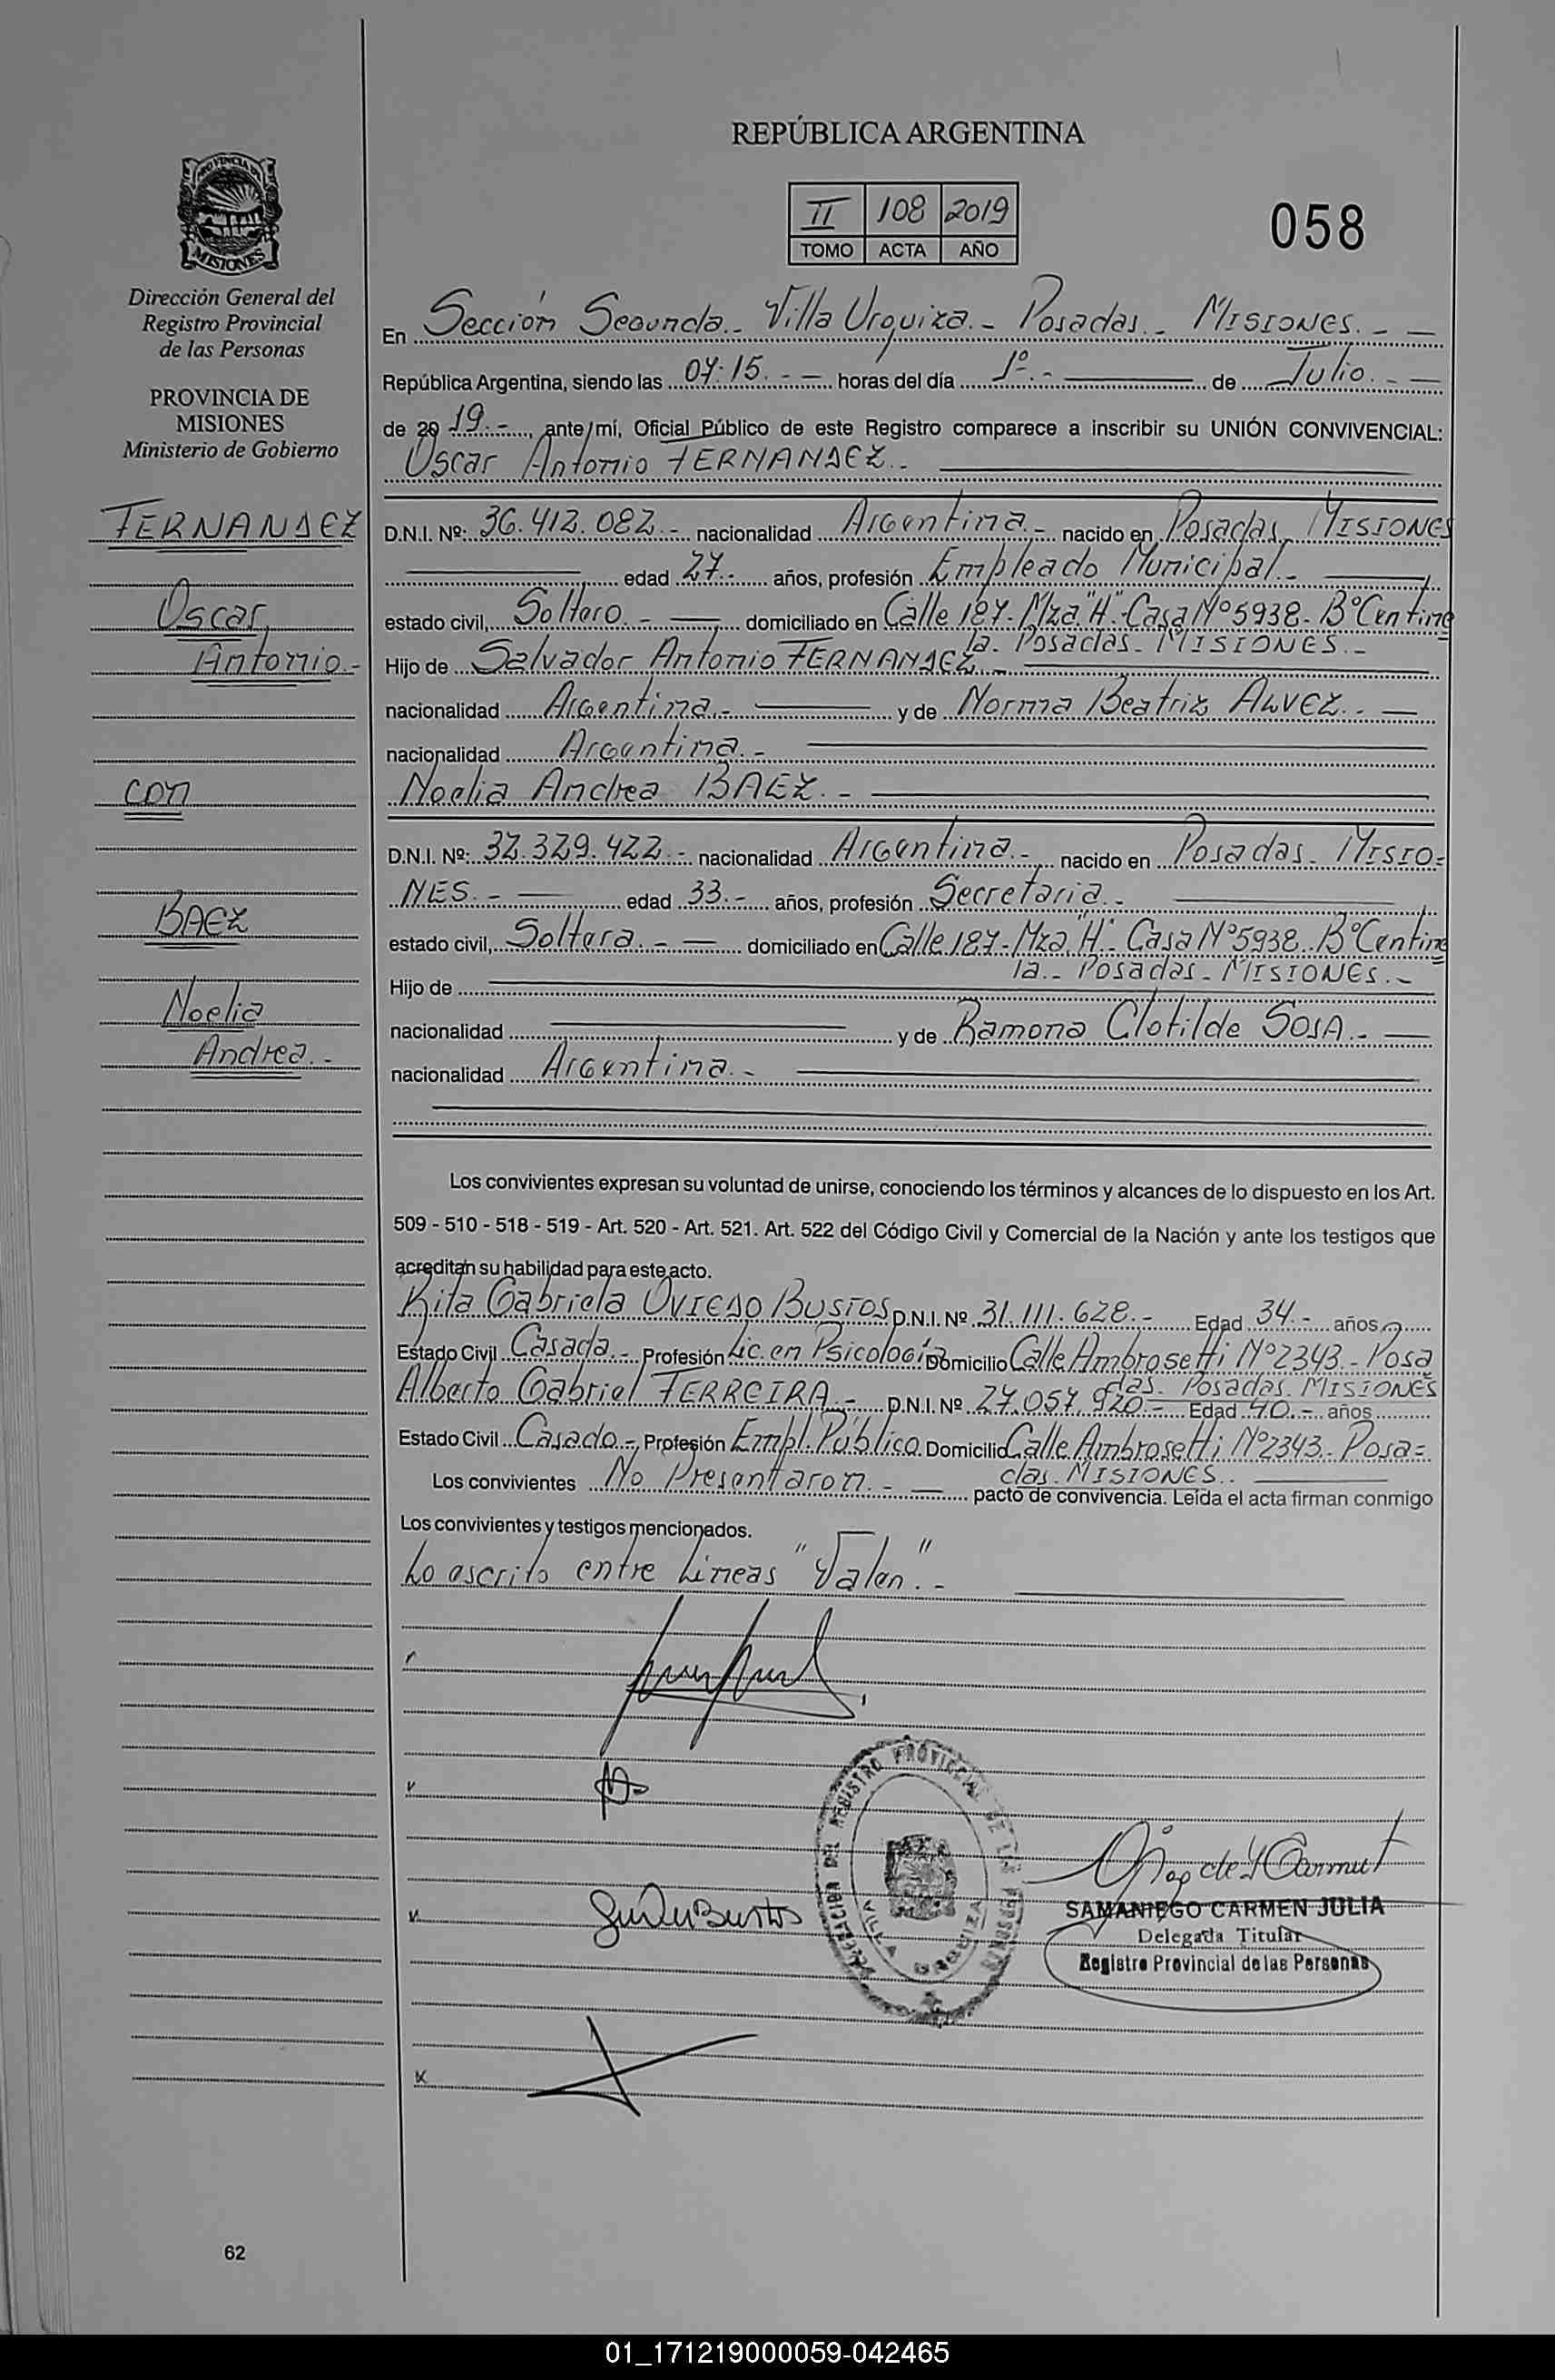 REPÚBLICA ARGENTINA
II 108 2019
TOMO ACTA AÑO
058
PROVINCIA DE MISIONES
Dirección General del
Registro Provincial
de las Personas
PROVINCIA DE
MISIONES
Ministerio de Gobierno
FERNANDEZ
Oscar
Antonio.-
con
BAEZ
Noelia
Andrea.-
En Sección Segunda.- Villa Urquiza.- Posadas.- MISIONES.-
República Argentina, siendo las 07:15.- horas del día 1º.- de Julio.-
de 2019.-, ante mí, Oficial Público de este Registro comparece a inscribir su UNIÓN CONVIVENCIAL:
Oscar Antonio FERNANDEZ.-
D.N.I. Nº: 36.412.082.- nacionalidad Argentina.- nacido en Posadas, MISIONES
edad 27.- años, profesión Empleado Municipal.-
estado civil, Soltero.- domiciliado en Calle 187- Mza "H"- Casa Nº 5938- Bº Centine
la- Posadas- MISIONES.-
Hijo de Salvador Antonio FERNANDEZ.-
nacionalidad Argentina.- y de Norma Beatriz ALVEZ.-
nacionalidad Argentina.-
Noelia Andrea BAEZ.-
D.N.I. Nº: 32.329.422.- nacionalidad Argentina.- nacido en Posadas- MISIO-
NES.- edad 33.- años, profesión Secretaria.-
estado civil, Soltera.- domiciliado en Calle 187- Mza "H"- Casa Nº 5938- Bº Centine
la.- Posadas- MISIONES.-
Hijo de
nacionalidad y de Ramona Clotilde SOSA.-
nacionalidad Argentina.-
Los convivientes expresan su voluntad de unirse, conociendo los términos y alcances de lo dispuesto en los Art.
509 - 510 - 518 - 519 - Art. 520 - Art. 521. Art. 522 del Código Civil y Comercial de la Nación y ante los testigos que
acreditan su habilidad para este acto.
Rita Gabriela OVIEDO BUSTOS D.N.I. Nº 31.111.628.- Edad 34.- años
Estado Civil Casada.- Profesión Lic. en Psicología Domicilio Calle Ambrosetti Nº 2343.- Posa
das- Posadas. MISIONES
Alberto Gabriel FERREIRA.- D.N.I. Nº 27.057.920.- Edad 40.- años
Estado Civil Casado.-, Profesión Empl. Público Domicilio Calle Ambrosetti Nº 2343.- Posa-
das. MISIONES.-
Los convivientes No Presentaron.- pacto de convivencia. Leída el acta firman conmigo
Los convivientes y testigos mencionados.
Lo escrito entre Líneas "Valen".-
DELEGACION DEL REGISTRO PROVINCIAL DE LAS PERSONAS
VILLA URQUIZA
SAMANIEGO CARMEN JULIA
Delegada Titular
Registro Provincial de las Personas
62
01_171219000059-042465